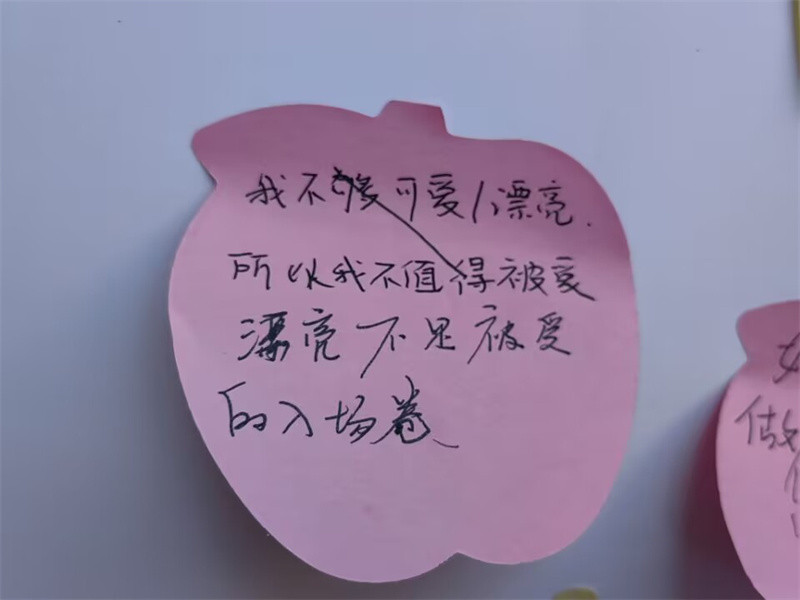 我不够可爱/漂亮.
所以我不值得被爱
漂亮不是被爱
的入场卷
做